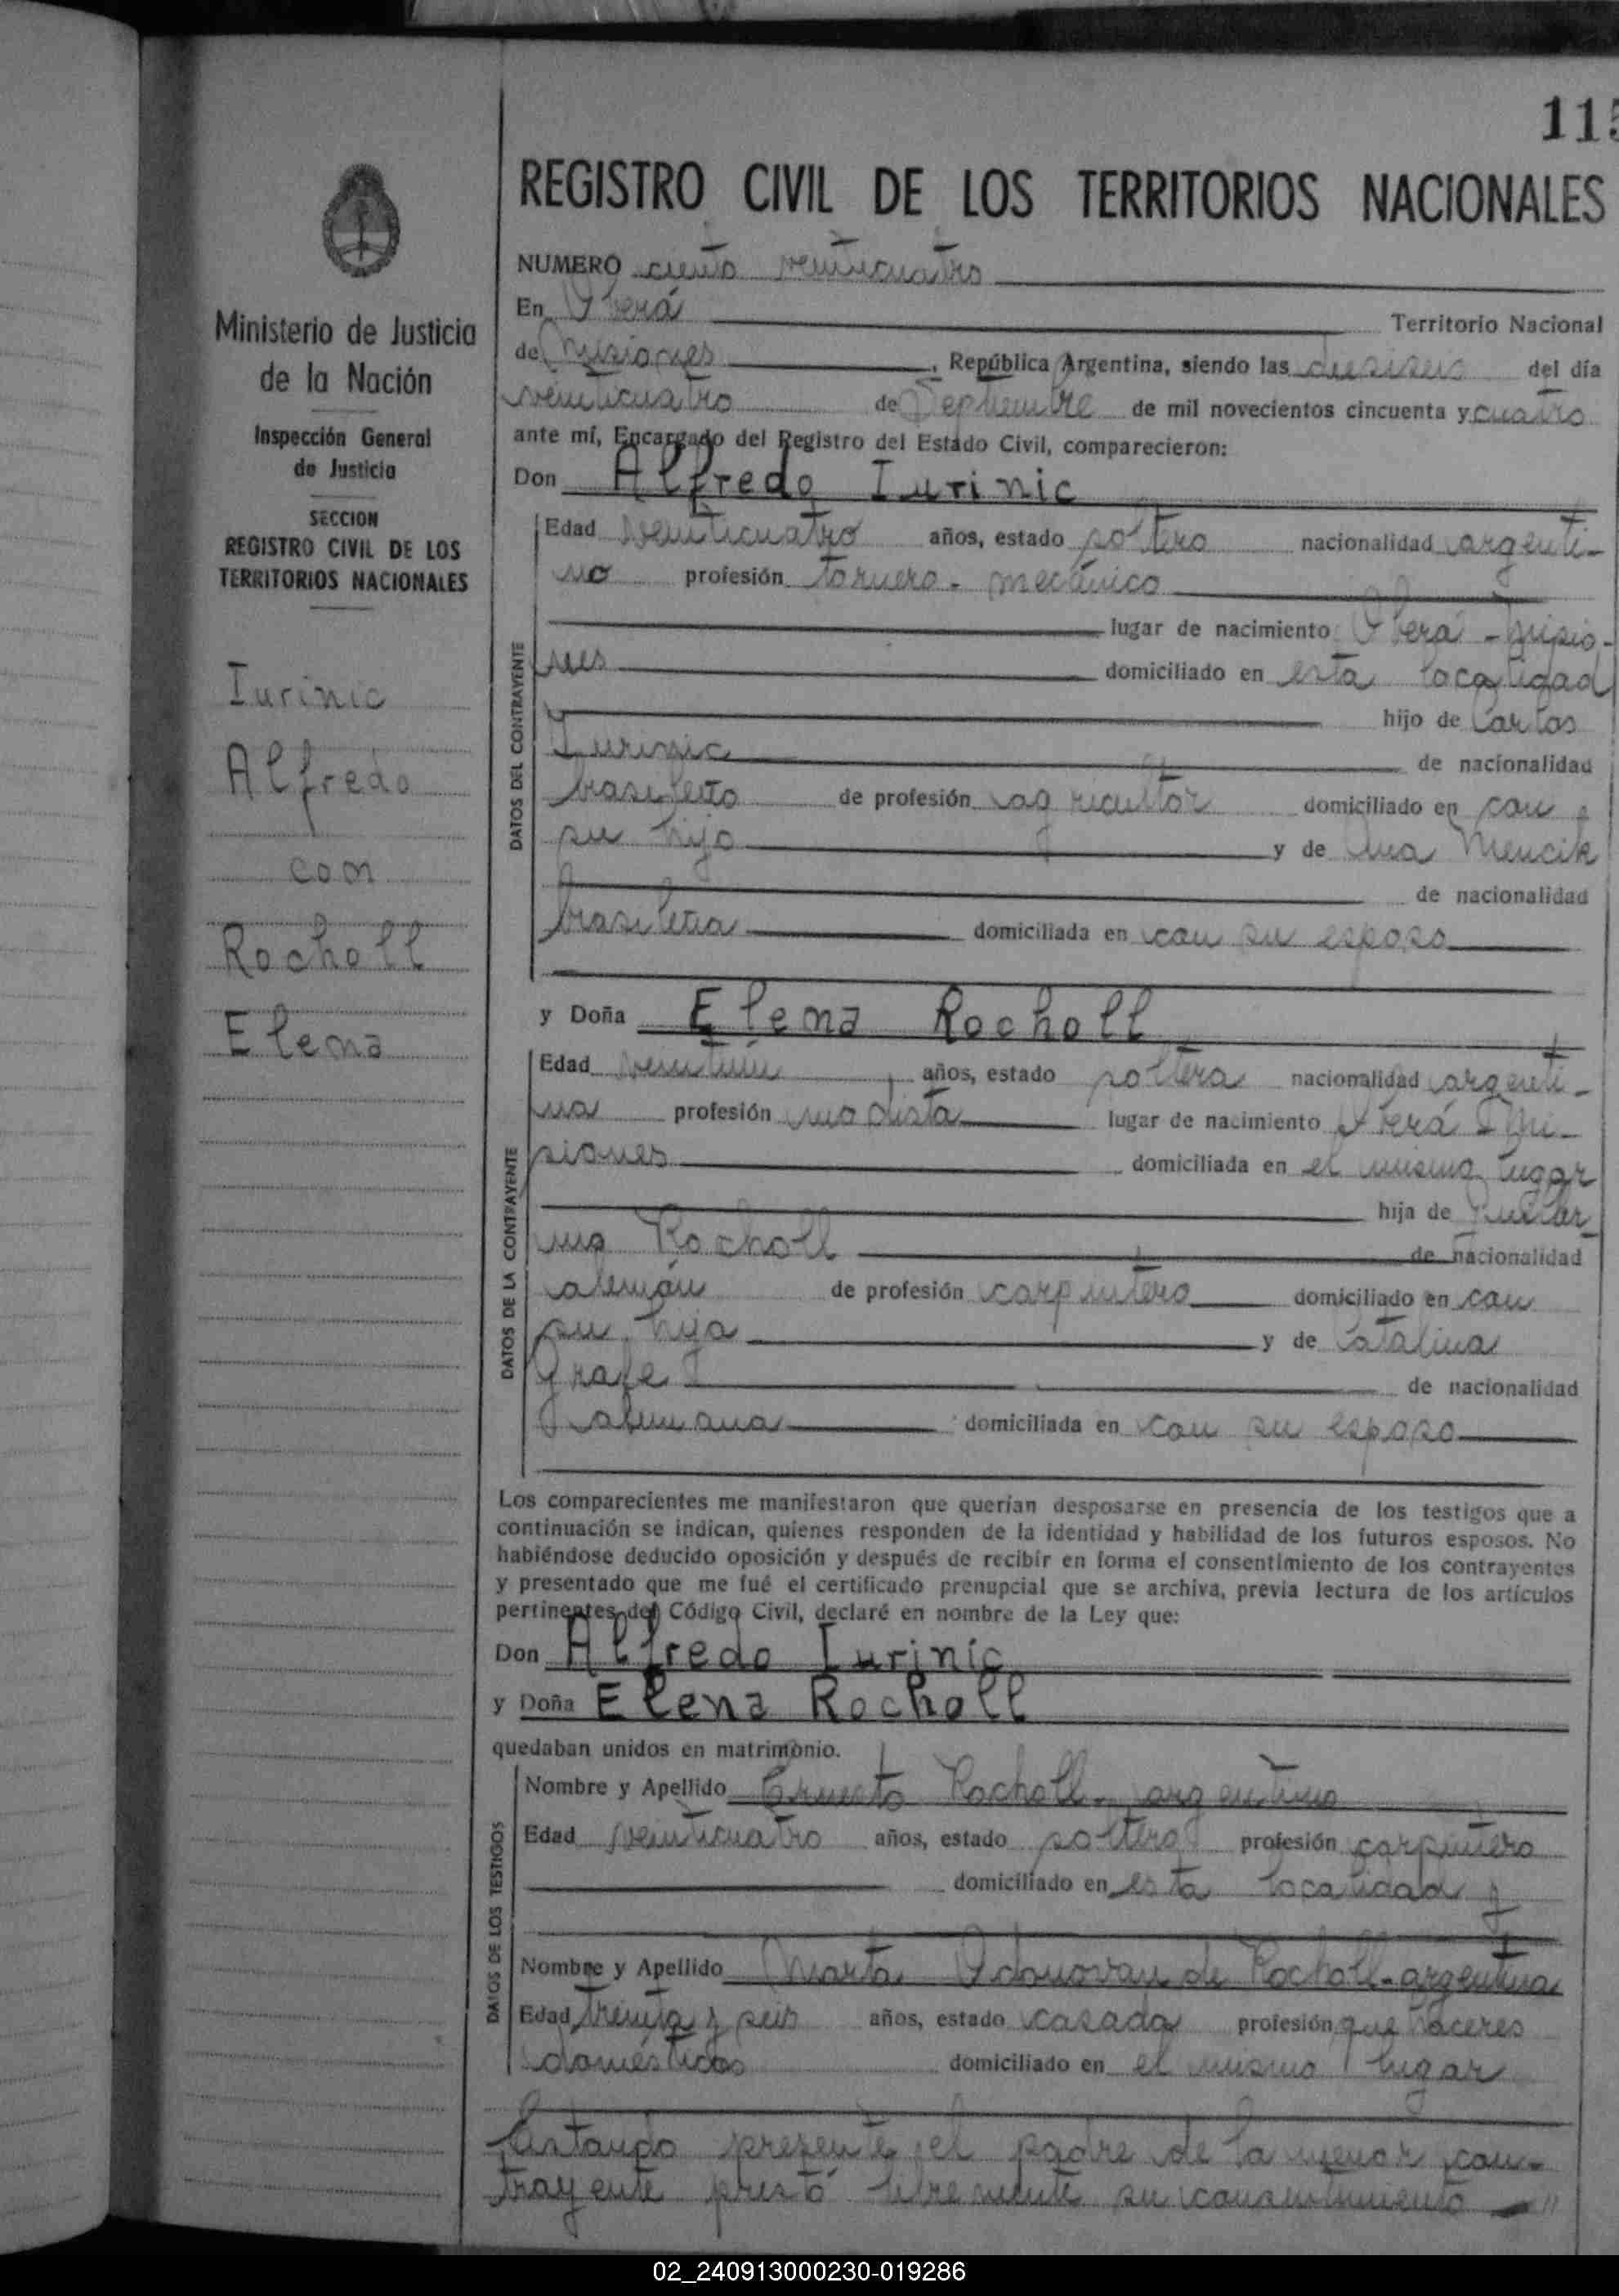 115
REGISTRO CIVIL DE LOS TERRITORIOS NACIONALES
NUMERO ciento veinticuatro
En Oberá Territorio Nacional
de Misiones, República Argentina, siendo las dieciseis del día
veinticuatro de Septiembre de mil novecientos cincuenta y cuatro
ante mí, Encargado del Registro del Estado Civil, comparecieron:
Don Alfredo Iurinic
DATOS DEL CONTRAYENTE
Edad veinticuatro años, estado soltero nacionalidad argenti-
no profesión tornero - mecánico
lugar de nacimiento Oberá - Misio-
nes domiciliado en esta localidad
hijo de Carlos
Iurinic de nacionalidad
brasileño de profesión agricultor domiciliado en con
su hijo y de Ana Mencik
de nacionalidad
brasileña domiciliada en con su esposo
y Doña Elena Rocholl
DATOS DE LA CONTRAYENTE
Edad veintiun años, estado soltera nacionalidad argenti-
na profesión modista lugar de nacimiento Oberá Mi-
siones domiciliada en el mismo lugar
hija de
Rocholl de nacionalidad
alemán de profesión carpintero domiciliado en con
su hija y de Catalina
Grafe de nacionalidad
alemana domiciliada en con su esposo
Los comparecientes me manifestaron que querían desposarse en presencia de los testigos que a
continuación se indican, quienes responden de la identidad y habilidad de los futuros esposos. No
habiéndose deducido oposición y después de recibir en forma el consentimiento de los contrayentes
y presentado que me fué el certificado prenupcial que se archiva, previa lectura de los artículos
pertinentes del Código Civil, declaré en nombre de la Ley que:
Don Alfredo Iurinic
y Doña Elena Rocholl
quedaban unidos en matrimonio.
DATOS DE LOS TESTIGOS
Nombre y Apellido Ernesto Rocholl - argentino
Edad veinticuatro años, estado soltero profesión carpintero
domiciliado en esta localidad y
Nombre y Apellido Marta Odonovan de Rocholl - argentina
Edad treinta y seis años, estado casada profesión que haceres
domésticos domiciliado en el mismo lugar
Estando presente el padre de la menor con-
trayente prestó libremente su consentimiento - "
Ministerio de Justicia
de la Nación
Inspección General
de Justicia
SECCION
REGISTRO CIVIL DE LOS
TERRITORIOS NACIONALES
Iurinic
Alfredo
con
Rocholl
Elena
02_240913000230-019286